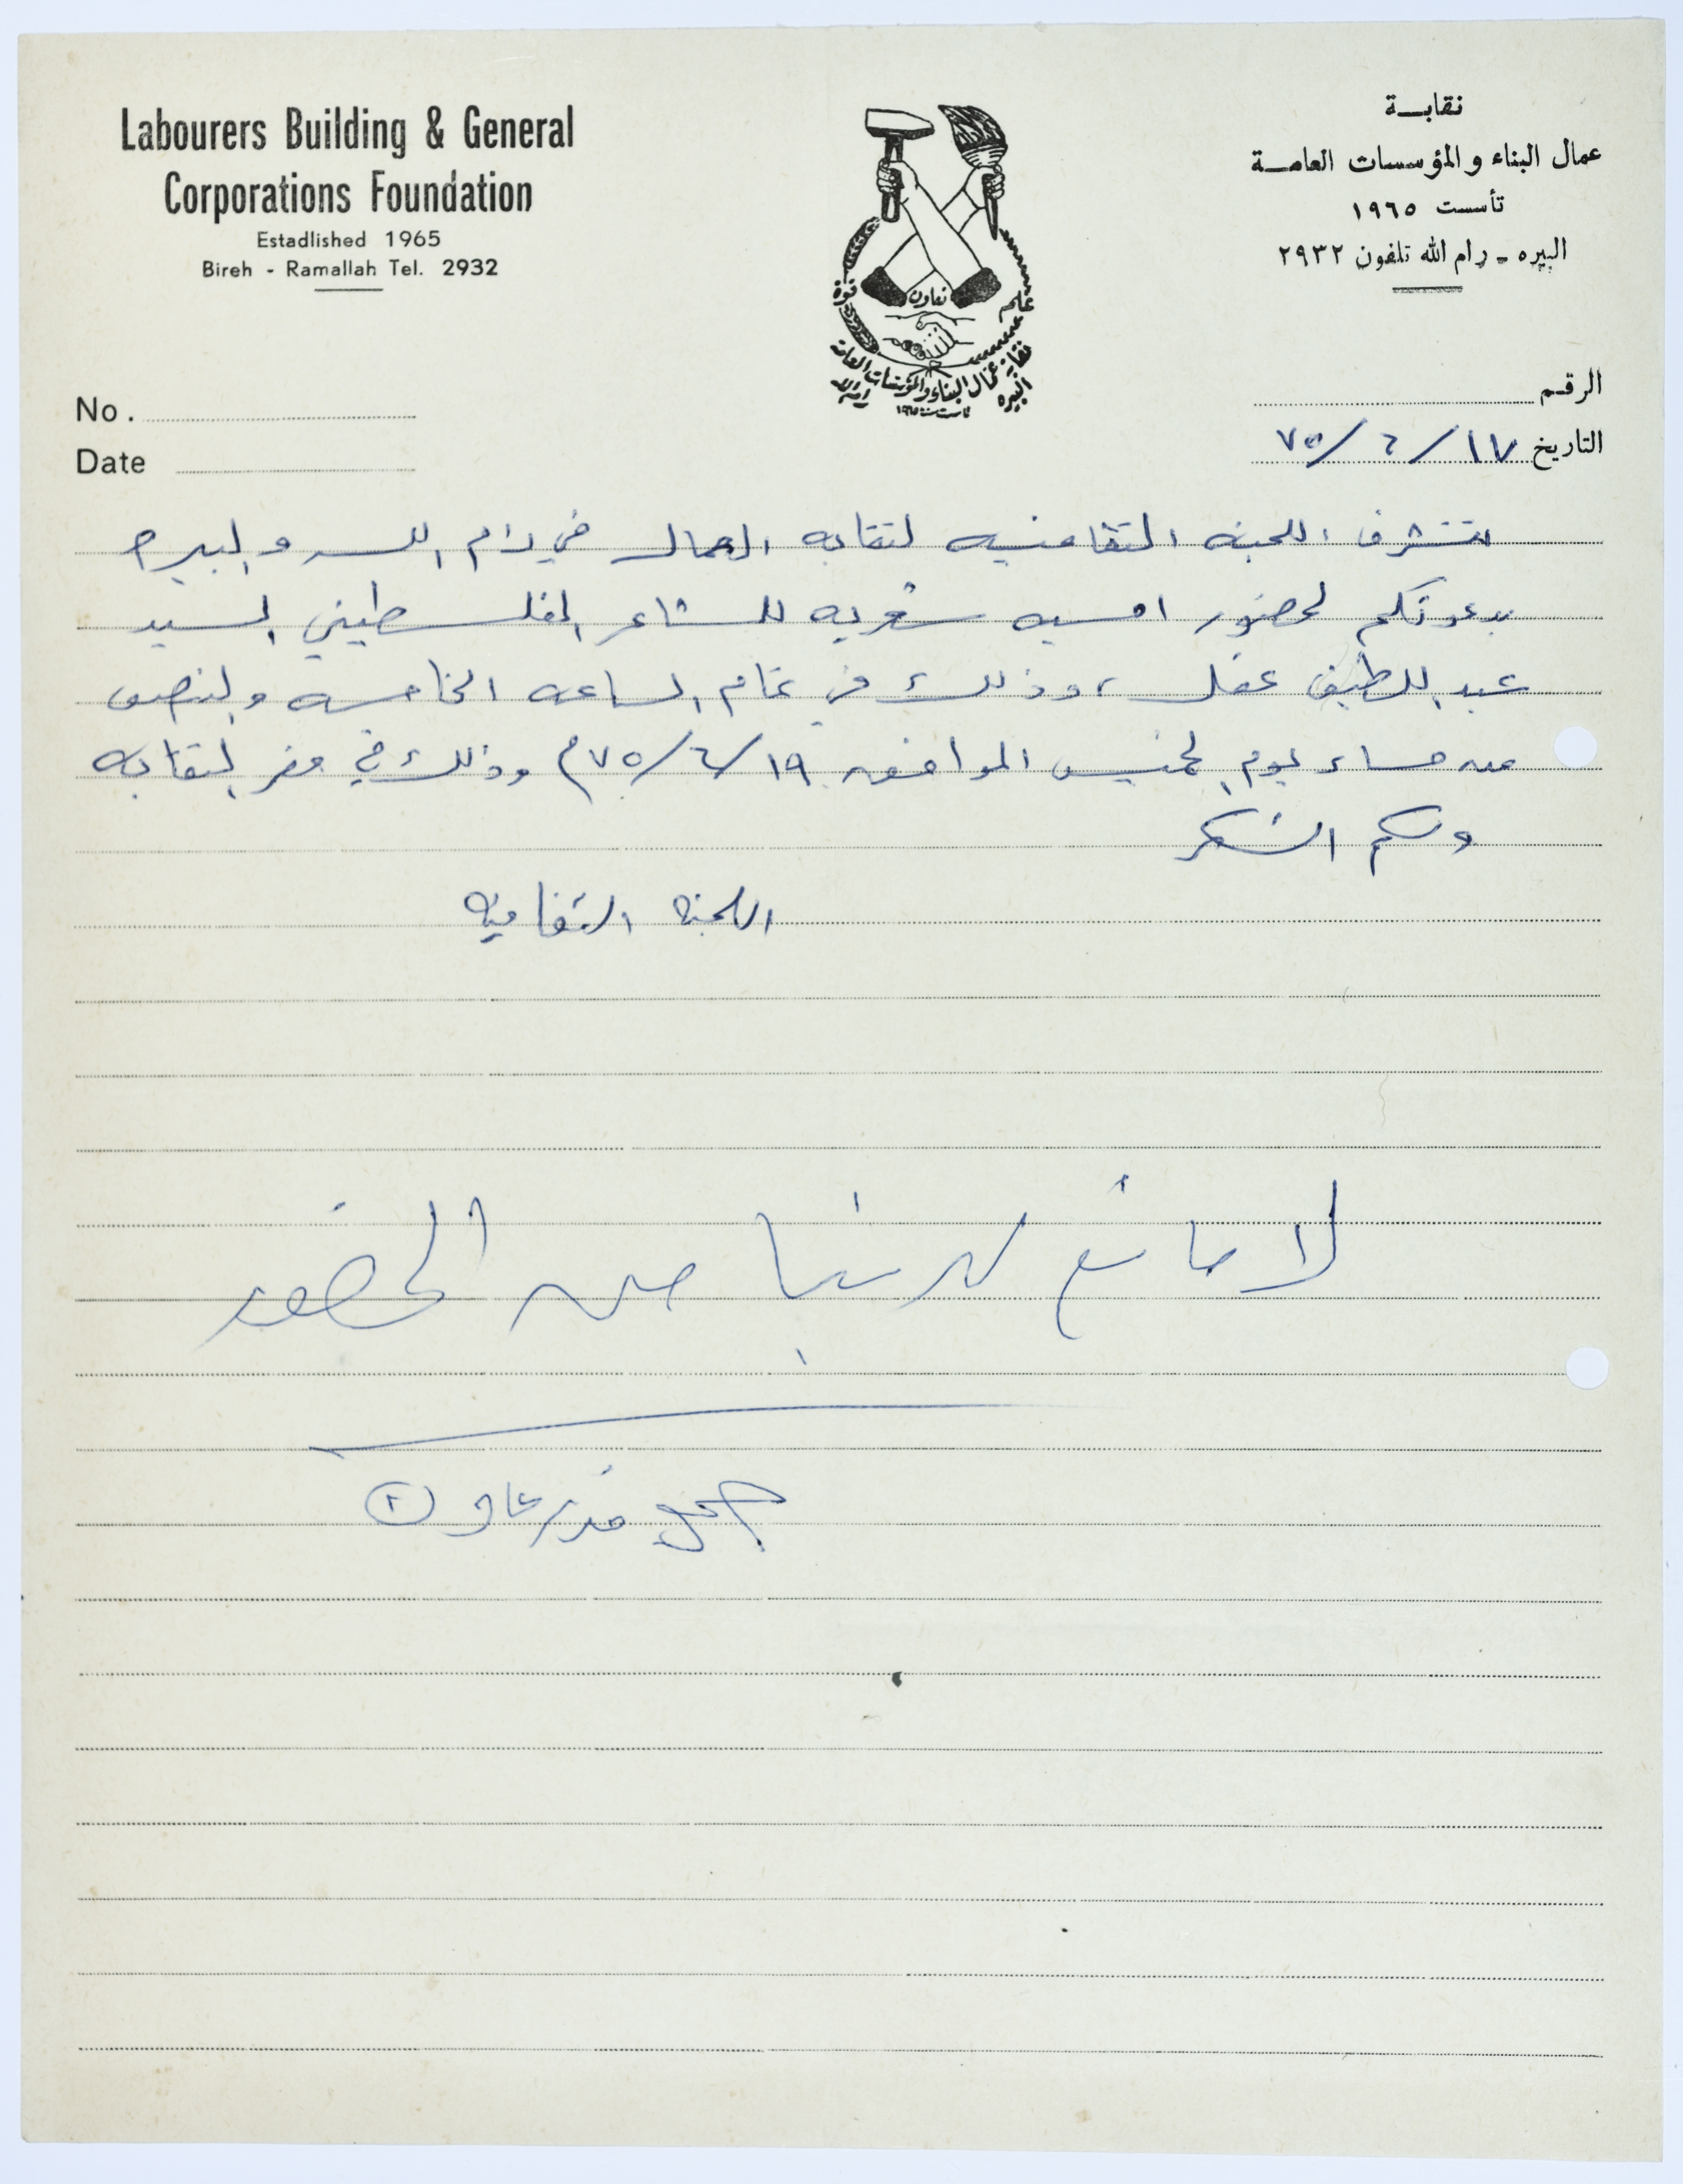 Labourers Building & General
Corporations Foundation
Estadlished 1965
Bireh - Ramallah Tel. 2932
نقابة
عمال البناء والمؤسسات العامة
تأسست ١٩٦٥
البيره - رام الله تلفون ٢٩٣٢
قوة تعاون علم
نقابة عمال البناء والمؤسسات العامة
البيره رام الله
تأسست سنة ١٩٦٥
No.
Date
الرقم
التاريخ ١٧ / ٦ / ٧٥
تتشرف اللجنه الثقافيه لنقابه العمال في رام الله والبيره
بدعوتكم لحضور امسيه شعريه للشاعر الفلسطيني السيد
عبد اللطيف عقل ، وذلك في تمام الساعه الخامسه والنصف
من مساء يوم الخميس الموافق ١٩/٦/٧٥م وذلك في مقر النقابه
ولكم الشكر
اللجنه الثقافيه
لا مانع لدينا من الحضور